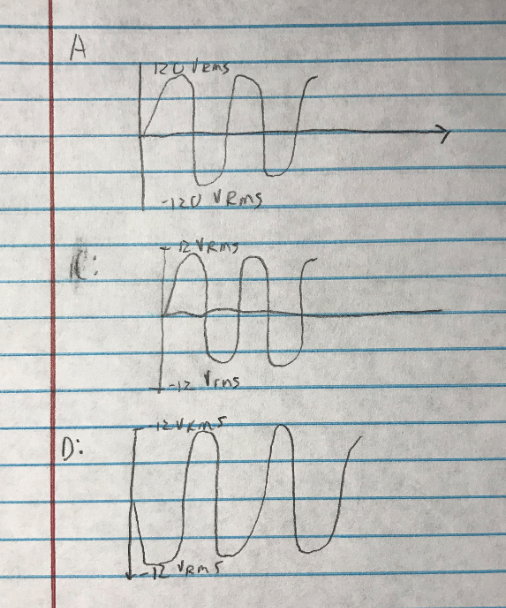 A
120 VRms
-120 VRms
12 VRms
-12 Vrms
D:
12 VRms
-12 VRms